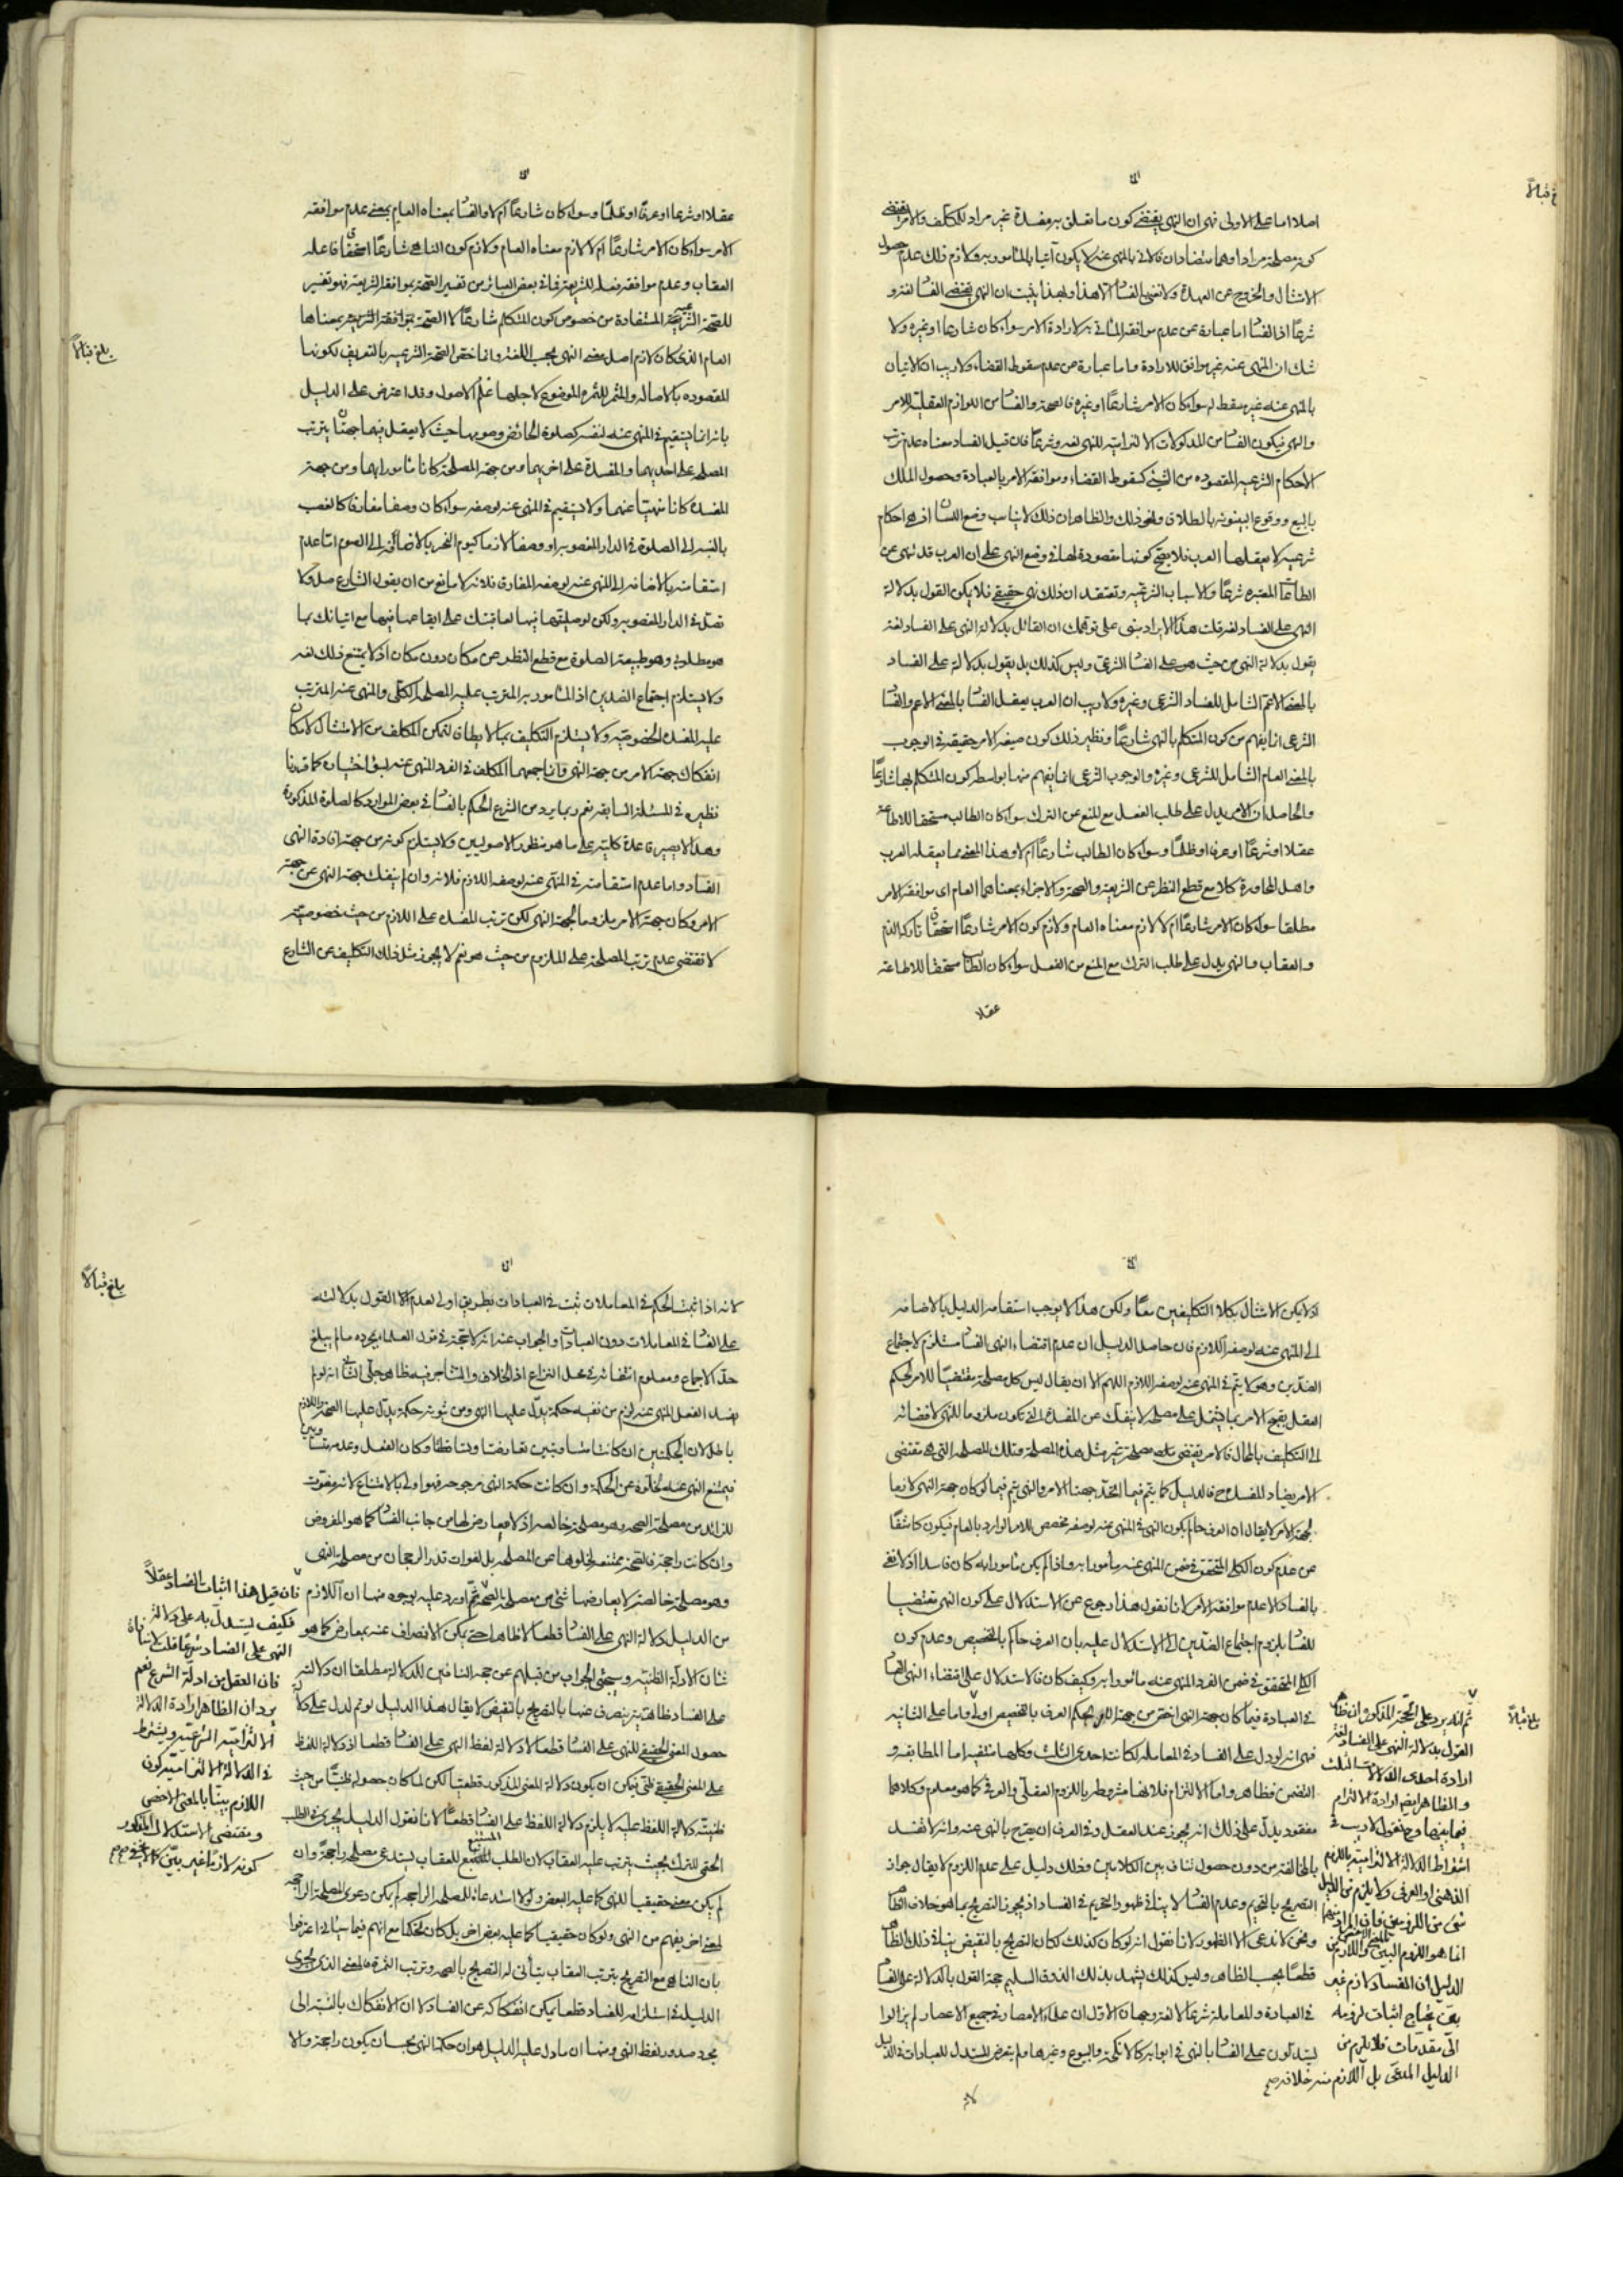 اصلا اما على الاولى فهى ان النهى يقتضى كون ما تعلق به مفسدة غير مراد للمكلف والامر يقتضى
كونه مصلحة مرادا وهما متضادان فالاتى بالمنهى عنه لا يكون آتيا بالمأمور به ولازم ذلك عدم حصول
الامتثال والخروج عن العهدة ولا نعنى بالفسا الا هذا ولهذا يثبت ان النهى يقتضى الفسا لغة و
شرعًا اذ الفسا اما عبارة عن عدم موافقة المأتى به لارادة الامر سواء كان شارعا او غيره ولا
شك ان المنهى عنه غير موافق للارادة واما عبارة عن عدم سقوط القضاء ولا ريب ان الاتيان
بالمنهى عنه غير مسقط له سواء كان الامر شارعًا او غيره فالصحة والفسا من اللوازم العقلية للامر
والنهى فيكون الفسا من المدلولات الالتزامية للنهى لغة وشرعًا فان قيل الفساد معناه عدم ترتب
الاحكام الشرعيه المقصوده من الشئ كسقوط القضاء وموافقة الامر بالعبادة وحصول الملك
بالبيع ووقوع البينونه بالطلاق ونحو ذلك والظاهر ان ذلك لا يناسب وضع اللسان اذ هى احكام
شرعيه لا يعقلها العرب فلا يصح كونها مقصودة لها فى وضع النهى على ان العرب قد نهى عن
الطاعا المعتبره شرعًا والاسباب الشرعيه وتعتقد ان ذلك نهى حقيقى فلا يمكن القول بدلالة
النهى على الفساد لغة قلت هذا الايراد مبنى على توهمك ان القائل بدلالة النهى على الفساد لغة
يقول بدلالة النهى من حيث هو على الفسا الشرعى وليس كذلك بل يقول بدلالة على الفساد
بالمعنى الاعم الشامل للفساد الشرعى وغيره ولا ريب ان العرب يعقل الفسا بالمعنى الاعم والفسا
الشرعى انما يفهم من كون المتكلم بالنهى شارعًا ونظير ذلك كون صيغة الامر حقيقة فى الوجوب
بالمعنى العام الشامل للشرعى وغيره والوجوب الشرعى انما يفهم منها بواسطة كون المتكلم بها شارعًا
والحاصل ان الامر يدل على طلب الفعل مع المنع عن الترك سواء كان الطالب مستحقا للاطاعة
عقلا او شرعًا او عرفا او ظلمًا وسواء كان الطالب شارعًا ام لا وهذا المعنى مما يعقله العرب
واهل المحاورة كلا مع قطع النظر عن الشريعة والصحة والاجزاء بمعناهما العام اى موافقة الامر
مطلقا سواء كان الامر شارعًا ام لا لازم معناه العام ولازم كون الامر شارعًا استحقاق تاركه الذم
والعقاب والنهى يدل على طلب الترك مع المنع من الفعل سواء كان الطالب مستحقا للاطاعة
عقلا
عقلا او شرعا او عرفًا او ظلمًا وسواء كان شارعًا ام لا والفسا بمعناه العام بمعنى عدم موافقة
الامر سواء كان الامر شارعًا ام لا لازم معناه العام ولازم كون الناهى شارعًا استحقاق فاعله
العقاب وعدم موافقة فعله للشريعة فما فى بعض العبائر من تفسير الصحة بموافقة الشريعة فهو تفسير
للصحة الشرعية المستفادة من خصوص كون المتكلم شارعًا لا الصحة بموافقة الشريعة بمعناها
العام الذى كان لازم اصل معنى النهى بحسب اللغة وانما خص الصحة الشرعية بالتعريف لكونها
المقصوده بالاصالة والمثمر للثمرة الموضوع لاجلها علم الاصول وقد اعترض على الدليل
بانه انما يستقيم فى المنهى عنه لنفسه كصلوة الحائض وصومها حيث لا يعقل فيهما جهتان يترتب
المصلحة على احديهما والمفسدة على اخريهما ومن جهة المصلحة كانا مأمورا بهما ومن جهة
المفسدة كانا منهيًا عنهما ولا يستقيم فى المنهى عنه لوصفه سواء كان وصفا مفارقا كالغصب
بالنسبة الى الصلوة فى الدار المغصوبه او وصفا لازما كيوم النحر بالاضافة الى الصوم اما عدم
استقامته بالاضافة الى المنهى عنه لوصفه المفارق فلانه لا مانع من ان يقول الشارع صل ولا
تصل فى الدار المغصوبه ولكن لو صليتها فيها لعاقبتك على ايقاعها فيها مع اتيانك بما
هو مطلوبى وهو طبيعة الصلوة مع قطع النظر عن مكان دون مكان اذ لا يمتنع ذلك لغة
ولا يستلزم اجتماع الضدين اذ المأمور به المترتب عليه المصلحة الكلى والمنهى عنه المترتب
عليه المفسدة الخصوصيه ولا يستلزم التكليف بما لا يطاق لتمكن المكلف من الامتثال لامكان
انفكاك جهة الامر من جهة النهى وانما جمعهما المكلف فى الفرد المنهى عنه بسوء اختياره كما قدمنا
نظيره فى المسئلة السابقه نعم ربما يرد من الشرع الحكم بالفسا فى بعض الموارد كالصلوة المذكورة
وهذا لا يصير قاعدة كلية على ما هو منظور الاصوليين ولا يستلزم كونه من جهة افادة النهى
الفساد واما عدم استقامته فى المنهى عنه لوصفه اللازم فلانه وان لم ينفك جهة النهى عن جهة
الامر وكان جهة الامر ملزوما لجهة النهى لكن ترتب المفسدة على اللازم من حيث خصوصيته
لا تقتضى عدم ترتب المصلحة على الملزوم من حيث هو نعم لا يجوز مثل ذلك التكليف عن الشارع
بلغ قبالاً
اذ لا يمكن الامتثال بكلا التكليفين معًا ولكن هذا لا يوجب استقامة الدليل بالاضافه
الى المنهى عنه لوصفه اللازم فان حاصل الدليل ان عدم اقتضاء النهى الفسا مستلزم لاجتماع
الضدين وهو لا يتم فى المنهى عنه لوصفه اللازم اللهم الا ان يقال ليس كل مصلحة مقتضيًا للامر لحكم
العقل بقبح الامر بما يشتمل على مصلحة لا ينفك عن المفسدة التى تكون ملزوما للنهى لافضائه
الى التكليف بالمحال فالامر يقتضى مصلحة غير مثل هذه المصلحة وتلك المصلحة التى هى مقتضى
الامر يضاد المفسدة فح فالدليل كما يتم فيما اتحد جهتا الامر والنهى يتم فيما لو كان جهة النهى لازما
لجهة الامر لا يقال ان العرف حاكم بكون النهى فى المنهى عنه لوصفه مخصص للامر الوارد بالعام فيكون كاشفًا
عن عدم كون الكلى المتحقق فى ضمن المنهى عنه مأمورا به واذا لم يكن مأمورا به كان فاسدا اذ لا نعنى
بالفساد الا عدم موافقة الامر لانا نقول هذا رجوع عن الاستدلال على كون النهى مقتضيا
للفسا بلزوم اجتماع الضدين الى الاستدلال عليه بان العرف حاكم بالتخصيص وعدم كون
الكلى المتحقق فى ضمن الفرد المنهى عنه مأمورا به وكيف كان فالاستدلال على اقتضاء النهى الفسا
فى العبادة فيما كان جهة النهى اخص من جهة الامر بحكم العرف بالتخصيص اولى واما على الثانيه
فهى انه لو دل على الفساد فى المعاملة لكانت احدى الثلث وكلها منتفية اما المطابقة و
التضمن فظاهر واما الالتزام فلانها مشروطة باللزوم العقلى والعرفى كما هو معلوم وكلاهما
مفقود يدل على ذلك انه يجوز عند العقل وفى العرف ان يصرح بالنهى عنه وانه لا تفسد
بالمخالفة من دون حصول تناف بين الكلامين وذلك دليل على عدم اللزوم لا يقال جواز
التصريح بالتحريم وعدم الفسا لا ينافى ظهور التحريم فى الفساد اذ يجوز التصريح بما هو خلاف الظا
ونحن لا ندعى الا الظهور لانا نقول انه لو كان كذلك لكان التصريح بالنقيض ينافى ذلك الظا
قطعًا بحسب الظاهر وليس كذلك يشهد بذلك الذوق السليم حجة القول بالدلالة على الفسا
فى العبادة والمعاملة شرعًا لا لغة وجهان الاول ان علماء الامصار فى جميع الاعصار لم يزالوا
يستدلون على الفسا بالنهى فى ابواب كالانكحة والبيوع وغيرها ولم يتعرض المستدل للعبادات فى الدليل
ثم انه يرد على الحجة المذكورة ان ظا
القول بدلالة النهى على الفساد لغة
ارادة احدى الدلالات الثلث
والظاهر ارادة الالتزام
فيما بينها وح نقول لا ريب فى
اشتراط الدلالة الالتزاميه باللزوم
الذهنى او العرفى ولا يلزم من الدليل
شئ من اللزومين فان المراد بهما
انما هو اللزوم البين واللازم من
الدليل ان الفساد لازم غير
بين يحتاج اثبات لزومه
الى مقدمات فلا يلزم من
الدليل المدعى بل اللازم منه خلافه صح
بلغ قبالاً
لانه
لانه اذا ثبت الحكم فى المعاملات ثبت فى العبادات بطريق اولى لعدم القول بدلالته
على الفسا فى المعاملات دون العبادات والجواب عنه انه لا حجة فى قول العلماء بمجرده ما لم يبلغ
حد الاجماع ومعلوم انتفائه فى محل النزاع اذ الخلاف والتشاجر فيه ظاهر جلى الثانى انه لو لم
يفسد الفعل المنهى عنه لزم من نفيه حكمة يدل عليها النهى ومن ثبوته حكمة يدل عليها الصحة واللازم
باطل لان الحكمتين ان كانتا متساويتين تعارضتا وتساقطتا وكان الفعل وعدمه متساويين
فيمتنع النهى عنه لخلوه عن الحكمة وان كانت حكمة النهى مرجوحة فهو اولى بالامتناع لانه مفوت
للزائد من مصلحة الصحة وهو مصلحة خالصة اذ لا معارض لها من جانب الفسا كما هو المفروض
وان كانت راجحة فالصحة ممتنعة لخلوها عن المصلحة بل لفوات قدر الرجحان من مصلحة النهى
وهو مصلحة خالصة لا يعارضها شئ من مصلحة الصحة ثم اورد عليه بوجوه منها ان اللازم
من الدليل دلالة النهى على الفسا قطعا لا ظاهرا حتى يمكن الانصراف عنه بمعارض كما هو
شان الادلة الظنيه وسيجئ الجواب من قبلهم عن حجة النافين للدلالة مطلقا ان دلالته
على الفساد ظاهرية ينصرف عنها بالتصريح بالنقيض لا يقال هذا الدليل لو تم لدل على
حصول المعنى الحقيقى للنهى على الفسا قطعا لا دلالة لفظ النهى على الفسا قطعا اذ دلالة اللفظ
على المعنى الحقيقى ظنى فيمكن ان يكون دلالة المعنى المذكور قطعيًا لكن لما كان حصوله ظنيًا من حيث
ظنية دلالة اللفظ عليه لا يلزم دلالة اللفظ على الفسا قطعًا لانا نقول الدليل يجرى فى الطلب
الحتمى للترك بحيث يترتب عليه العقاب لان الطلب المستتبع للعقاب يستدعى مصلحة راجحة وان
لم يكن معنى حقيقيا للنهى كما عليه البعض ولولا استدعائه للمصلحة الراجحة لم يكن دعوى المصلحة الراجحة
لمعنى اخر يفهم من النهى ولو كان حقيقيا كما عليه بعض اخر بل كان تحكما مع انهم فيما سيأتى اعترفوا
بان الناهى مع التصريح بترتب العقاب يتأتى له التصريح بالصحة وترتب الثمرة فالمعنى الذى يجرى
الدليل فى استلزامه للفساد قطعا يمكن انفكاكه عن الفساد لا ان الانفكاك بالنسبة الى
مجرد صدور لفظ النهى ومنها ان ما دل عليه الدليل هو ان حكمة النهى يجب ان يكون راجحة والا
فان قيل هذا اثبات الفساد عقلاً
فكيف يستدل به على دلالة
النهى على الفساد شرعًا قلت لا منافاة
فان العقل من ادلة الشرع نعم
يرد ان الظاهر ارادة الدلالة
الالتزامية الشرعية ويشترط
فى الدلالة الالتزامية كون
اللازم بينًا بالمعنى الاخص
ومقتضى الاستدلال المذكور
كونه لازمًا غير بين كما لا يخفى صح
بلغ قبالاً